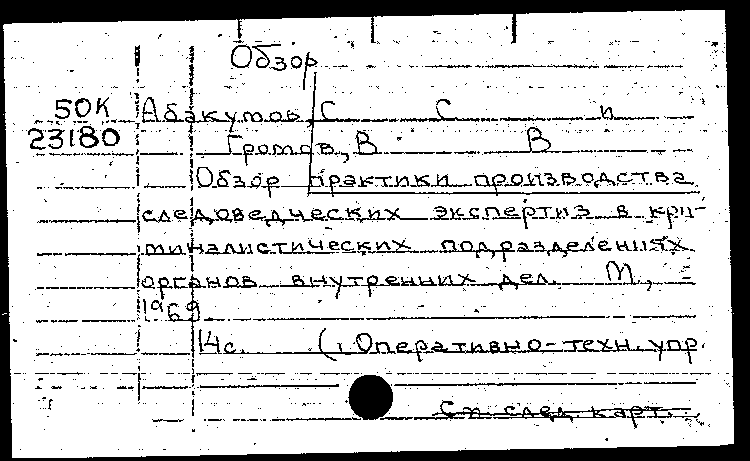 Обзор
50К Абакумов, С С и
23180 Громов, В В
Обзор практики производства
следоведческих экспертиз в кри-
миналистических подразделениях
органов внутренних дел. М.,
1969.
14с. (Оперативно-техн. упр.
См след. карт.